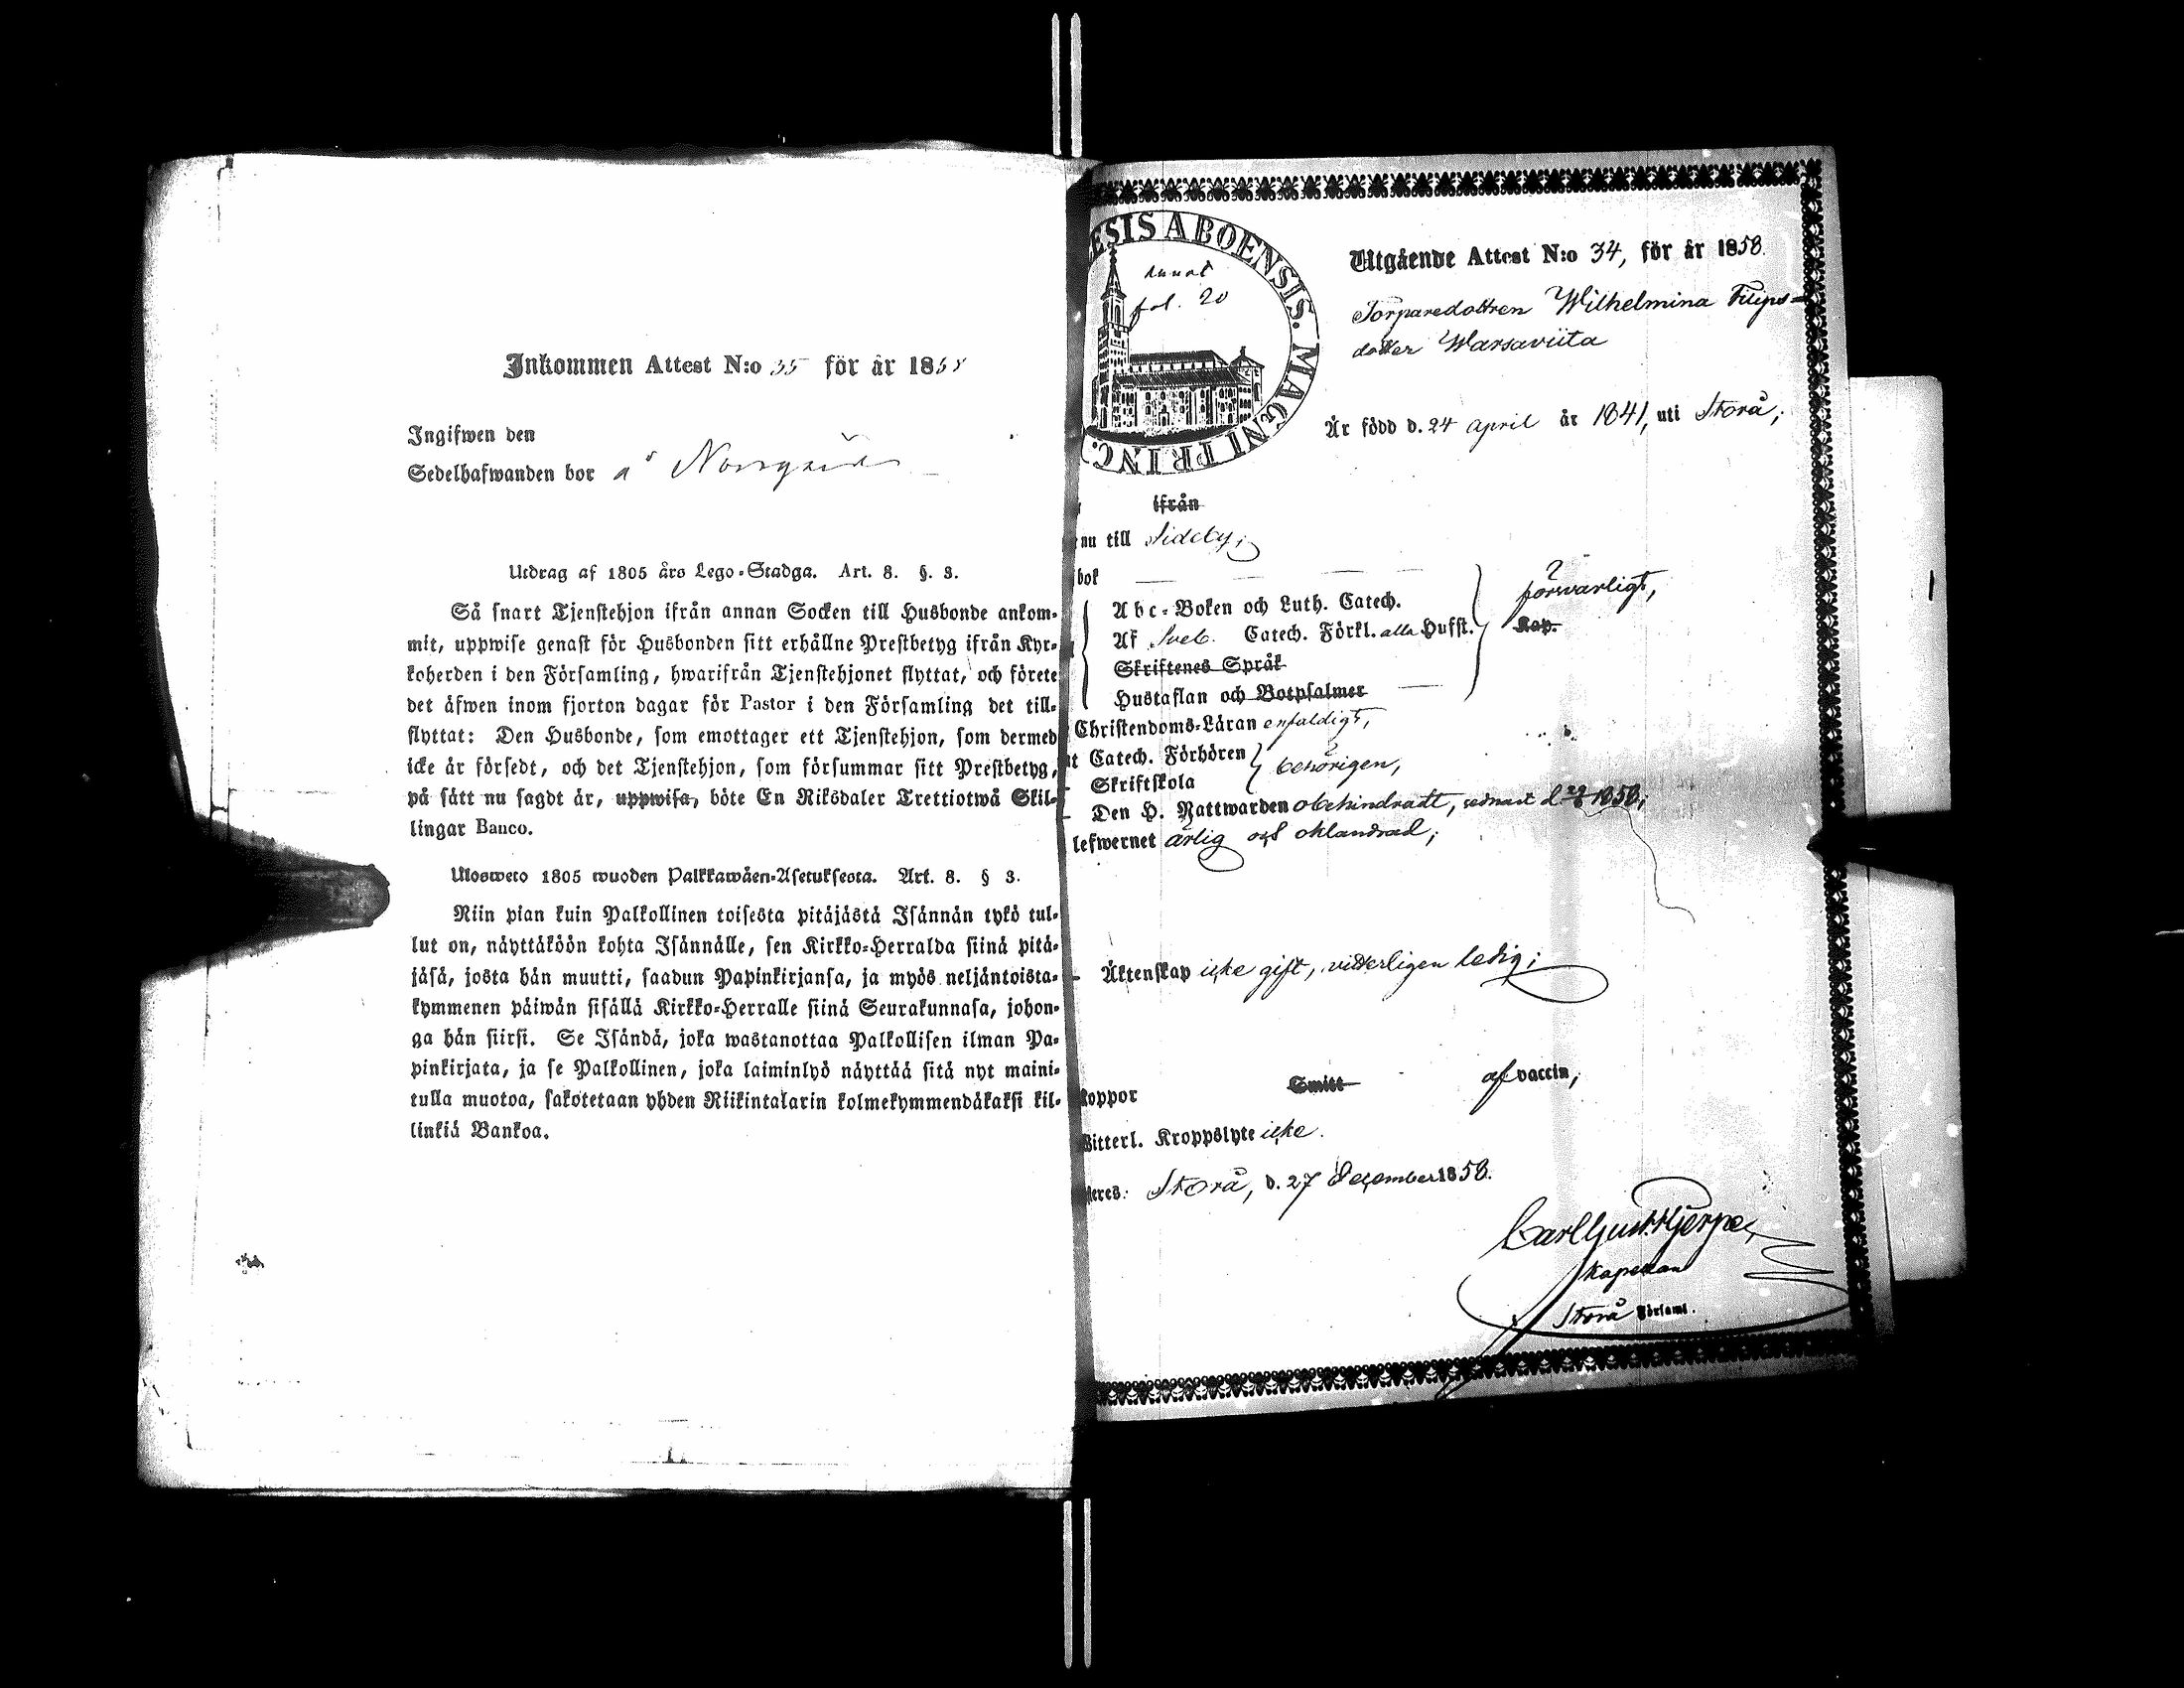 Inkommen Attest N:o 35 för år 1858
Ingifwen den
Sedelhafwanden bor å Norrgård
Utdrag af 1805 års Lego-Stadga. Art. 8. §. 3.
Så snart Tjenstehjon ifrån annan Socken till Husbonde ankom-
mit, uppwise genast för Husbonden sitt erhållne Prestbetyg ifrån Kyr-
koherden i den Församling, hwarifrån Tjenstehjonet flyttat, och förete
det äfwen inom fjorton dagar för Pastor i den Församling det till-
flyttat: Den Husbonde, som emottager ett Tjenstehjon, som dermed
icke är försedt, och det Tjenstehjon, som försummar sitt Prestbetyg,
på sätt nu sagdt är, uppwisa, böte En Riksdaler Trettiotwå Skil-
lingar Banco.
Ulosweto 1805 wuoden Palkkawäen-Asetuksesta. Art. 8. § 3.
Niin pian kuin Palkollinen toisesta pitäjästä Isännän tykö tul-
lut on, näyttäköön kohta Isännälle, sen Kirkko-Herralda siinä pitä-
jäsä, josta hän muutti, saadun Papinkirjansa, ja myös neljäntoista-
kymmenen päiwän sisällä Kirkko-Herralle siinä Seurakunnasa, johon-
ga hän siirsi. Se Isändä, joka wastanottaa Palkollisen ilman Pa-
pinkirjata, ja se Palkollinen, joka laiminlyö näyttää sitä nyt maini-
tulla muotoa, sakotetaan yhden Riikintalarin kolmekymmendäkaksi kil-
linkiä Bankoa.
ESIS ABOENSIS. MAGNI PRINC.
fol. 20
Utgående Attest N:o 34, för år 1858.
Torparedottren Wilhelmina Filips-
dotter Warsaviita
Är född d. 24 april år 1841, uti Storå;
ifrån
nu till Sideby;
bok
Abc-Boken och Luth. Catech.
Af Sveb. Catech. Förkl. alla Hufst.
försvarligt,
Kap.
Skriftenes Språk
Hustaflan och Botpsalmer
Christendoms-Läran enfaldigt,
Catech. Förhören
behörigen,
Skriftskola
Den H. Nattwarden obehindradt, sednast d. 1858;
lefwernet ärlig och oklandrad;
Äktenskap icke gift, vitterligen ledig;
koppor Smitt af vaccin,
Witterl. Kroppslyte icke.
Storå, d. 27 December 1858.
Carl Gust. Hjerpe,
Kapellan
Storå Församl.